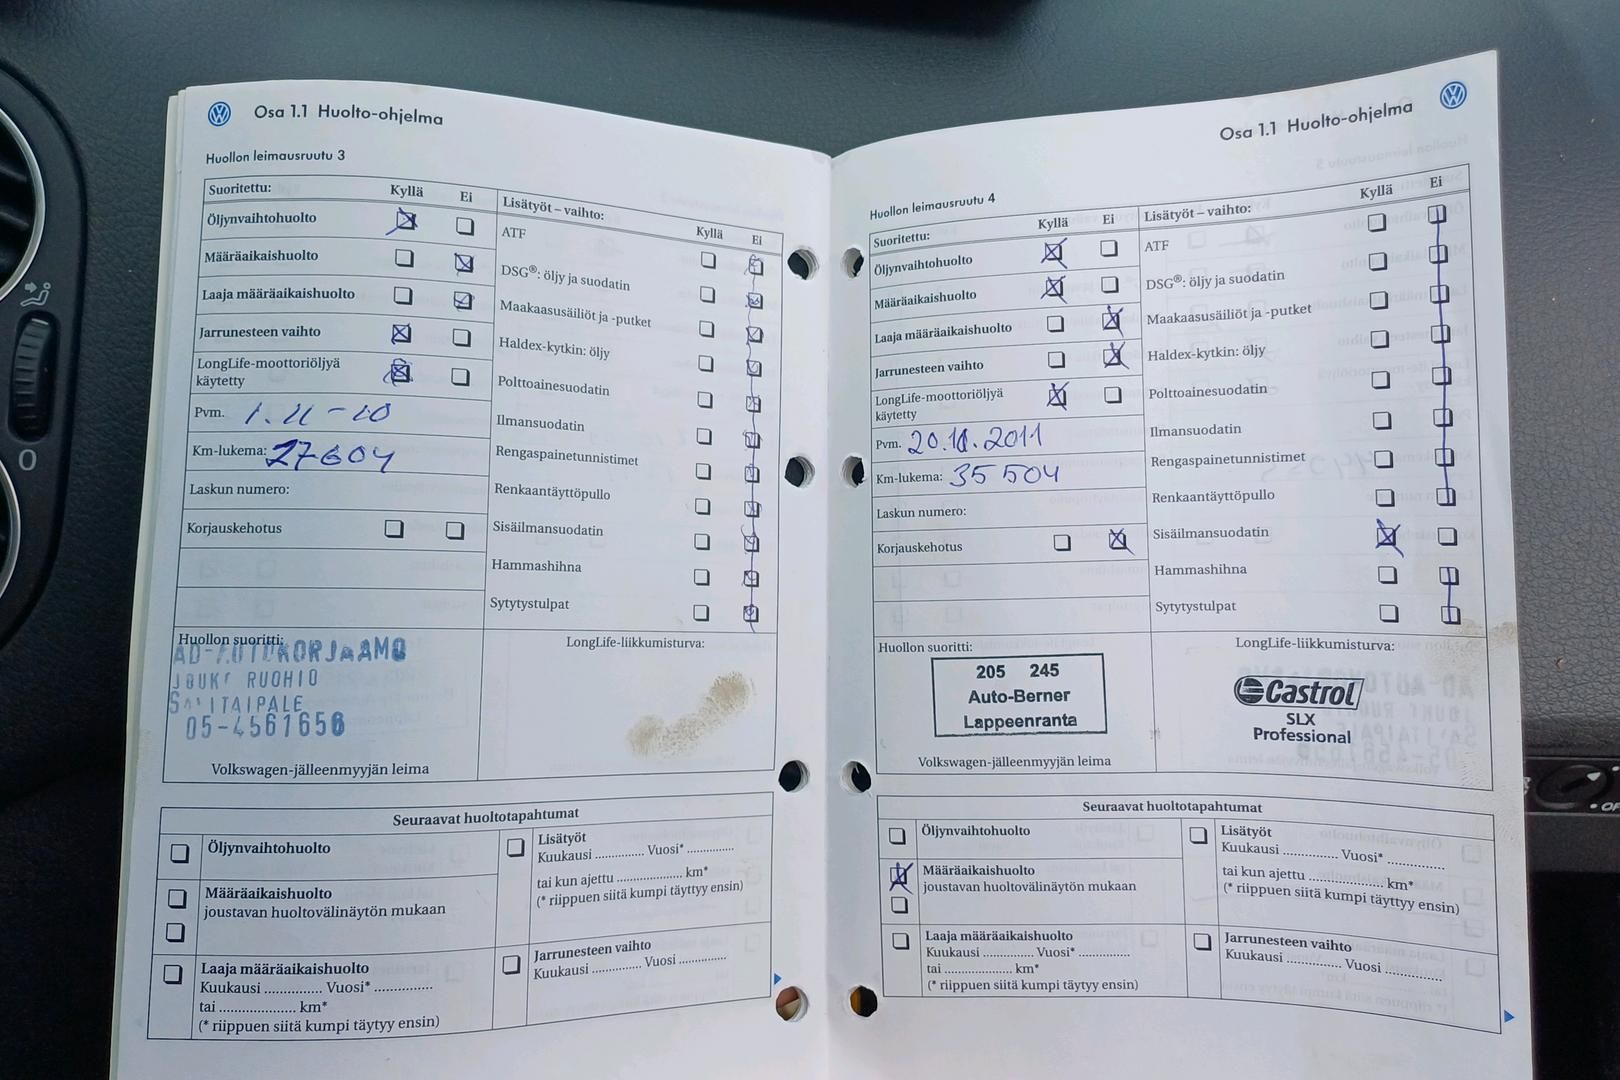 Osa 1.1 Huolto-ohjelma
Huollon leimausruutu 3
Suoritettu: Kyllä Ei
Öljynvaihtohuolto
Määräaikaishuolto
Laaja määräaikaishuolto
Jarrunesteen vaihto
LongLife-moottoriöljyä
käytetty
Pvm. 1.11-10
Km-lukema: 27604
Laskun numero:
Korjauskehotus
Lisätyöt – vaihto: Kyllä Ei
ATF
DSG®: öljy ja suodatin
Maakaasusäiliöt ja -putket
Haldex-kytkin: öljy
Polttoainesuodatin
Ilmansuodatin
Rengaspainetunnistimet
Renkaantäyttöpullo
Sisäilmansuodatin
Hammashihna
Sytytystulpat
Huollon suoritti:
AD-AUTOKORJAAMO
JOUKO RUOHIO
SAVITAIPALE
05-4561656
Volkswagen-jälleenmyyjän leima
LongLife-liikkumisturva:
Seuraavat huoltotapahtumat
Öljynvaihtohuolto
Määräaikaishuolto
joustavan huoltovälinäytön mukaan
Laaja määräaikaishuolto
Kuukausi ............... Vuosi* ...............
tai .................... km*
(* riippuen siitä kumpi täytyy ensin)
Lisätyöt
Kuukausi ............... Vuosi* ...............
tai kun ajettu .................... km*
(* riippuen siitä kumpi täyttyy ensin)
Jarrunesteen vaihto
Kuukausi ............... Vuosi ...............
Osa 1.1 Huolto-ohjelma
Huollon leimausruutu 4
Suoritettu: Kyllä Ei
Öljynvaihtohuolto
Määräaikaishuolto
Laaja määräaikaishuolto
Jarrunesteen vaihto
LongLife-moottoriöljyä
käytetty
Pvm. 20.10.2011
Km-lukema: 35 504
Laskun numero:
Korjauskehotus
Lisätyöt – vaihto: Kyllä Ei
ATF
DSG®: öljy ja suodatin
Maakaasusäiliöt ja -putket
Haldex-kytkin: öljy
Polttoainesuodatin
Ilmansuodatin
Rengaspainetunnistimet
Renkaantäyttöpullo
Sisäilmansuodatin
Hammashihna
Sytytystulpat
Huollon suoritti:
205 245
Auto-Berner
Lappeenranta
Volkswagen-jälleenmyyjän leima
LongLife-liikkumisturva:
Castrol
SLX
Professional
Seuraavat huoltotapahtumat
Öljynvaihtohuolto
Määräaikaishuolto
joustavan huoltovälinäytön mukaan
Laaja määräaikaishuolto
Kuukausi ............... Vuosi* ...............
tai .................... km*
(* riippuen siitä kumpi täytyy ensin)
Lisätyöt
Kuukausi ............... Vuosi* ...............
tai kun ajettu .................... km*
(* riippuen siitä kumpi täyttyy ensin)
Jarrunesteen vaihto
Kuukausi ............... Vuosi ...............